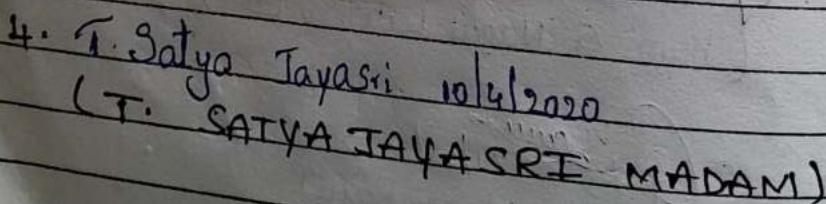 4. T. Satya Jayasri 10/4/2020
(T. SATYA JAYA SRI MADAM)